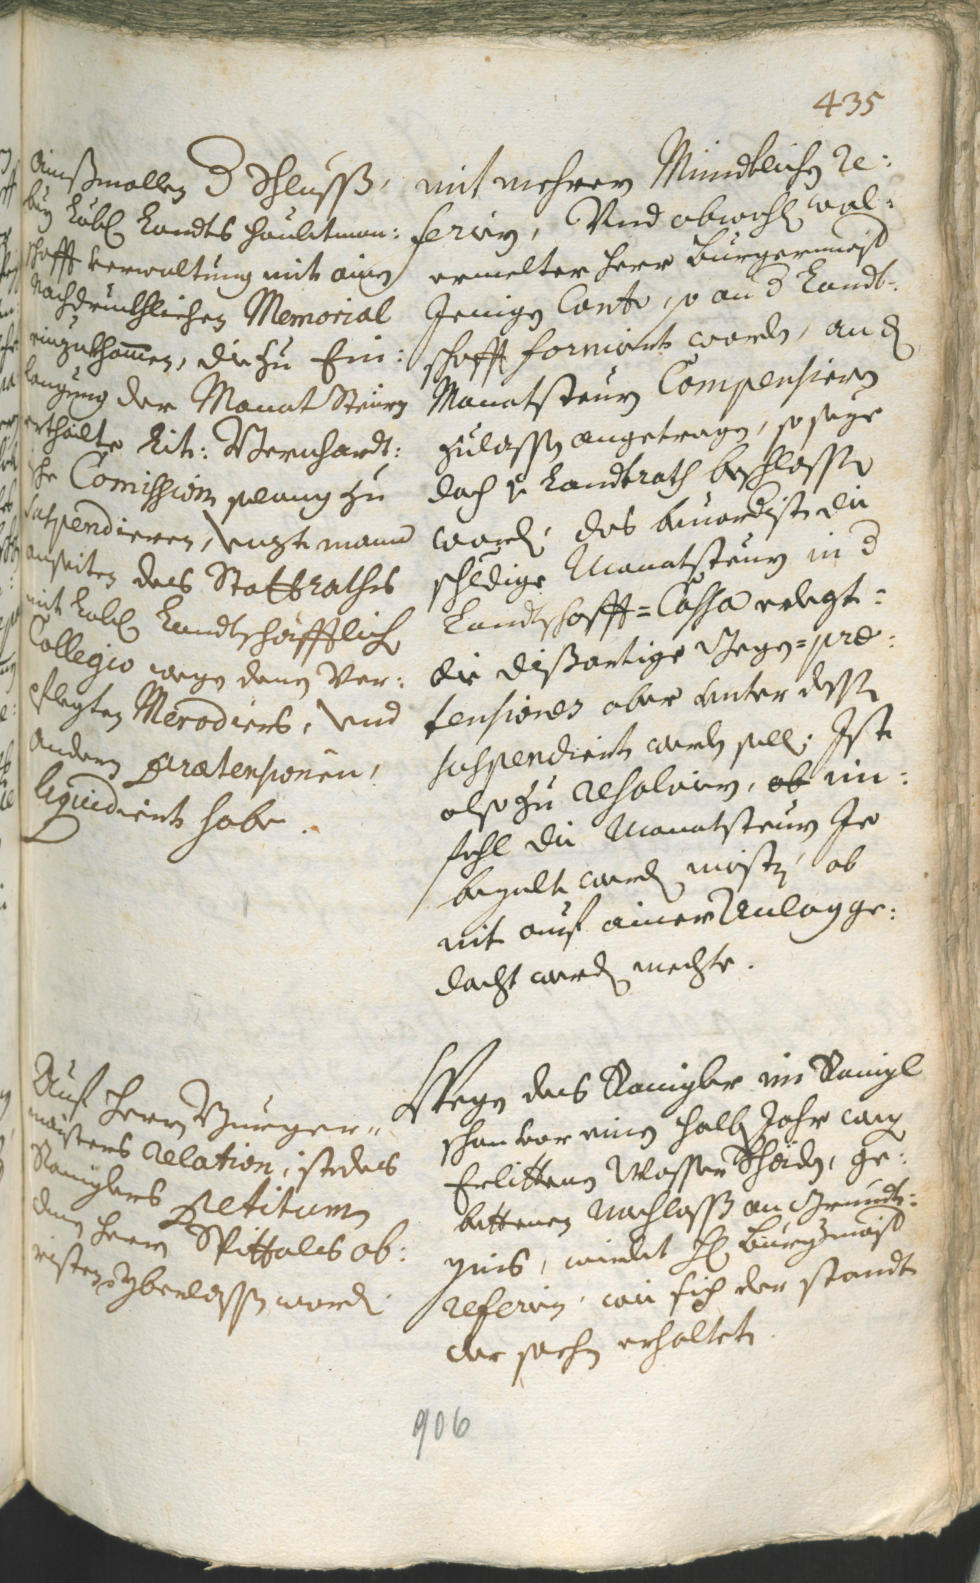 435
Ainßmallen d Schluss,
bey Löbl Landts Haubtman:
schafft verwaltung mit ainem
Nachdrückhlichen Memorial
einzukhommen, die zu Ein:
langung der Monat Steuer
erthailte Lit: Bernhardt:
sche Comission solang zu
suspendieren, bisz mann
anseiten des Stattraths
mit Löbl Landtschäfftlich
Collegio wegen denen Ver:
pflegten Merodiers, Und
andern praetensionen,
liquidiert habe.
mit mehrern Mündtlichen re:
ferirn, Und obwohl wol:
ermelter Herr Burgermaist
Jenigen Conto, so an d Landt:
schafft formiert worden, an d
Monatsteur Compensiern
zulassen angetragen, so seye
doch in Landtrath beschlossen
worden, das die
schuldige Monatsteur in d
Landtschafft=Cassa erlegt:
die dißartige Gegen=prae:
tensiones aber unter dessen
suspendiert werden soll. Ist
also zu resolvirn, ob im:
fahl die Monatsteur Je
bezalt werden miste, ob
nit auf ainer Anlag ge:
dacht werden mechte.
Auf Herrn Burger=
maisters relation, ist des
petitum
dem Herrn Spittals ob:
risten yberlassen worden
Wegen des
schon vor einem halben Jahr wegen
Erlittenen Wasser Schäden, ge:
bettenen Nachlass an Grundt:
zins, wirdet H Burgermaist
referirn, wie sich der standt
der sachen erhaltet.
906